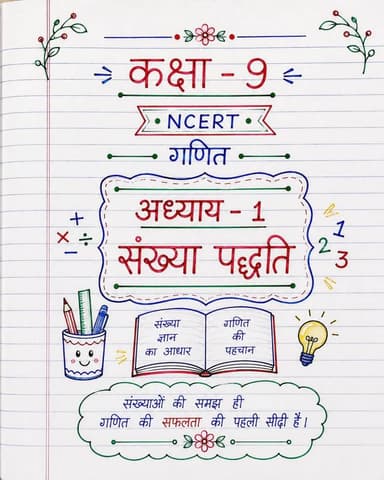 कक्षा - 9
NCERT
गणित
अध्याय - 1
संख्या पद्धति
+
× ÷
-
1
2
3
संख्या
ज्ञान
का आधार
गणित
की
पहचान
संख्याओं की समझ ही
गणित की सफलता की पहली सीढ़ी है।